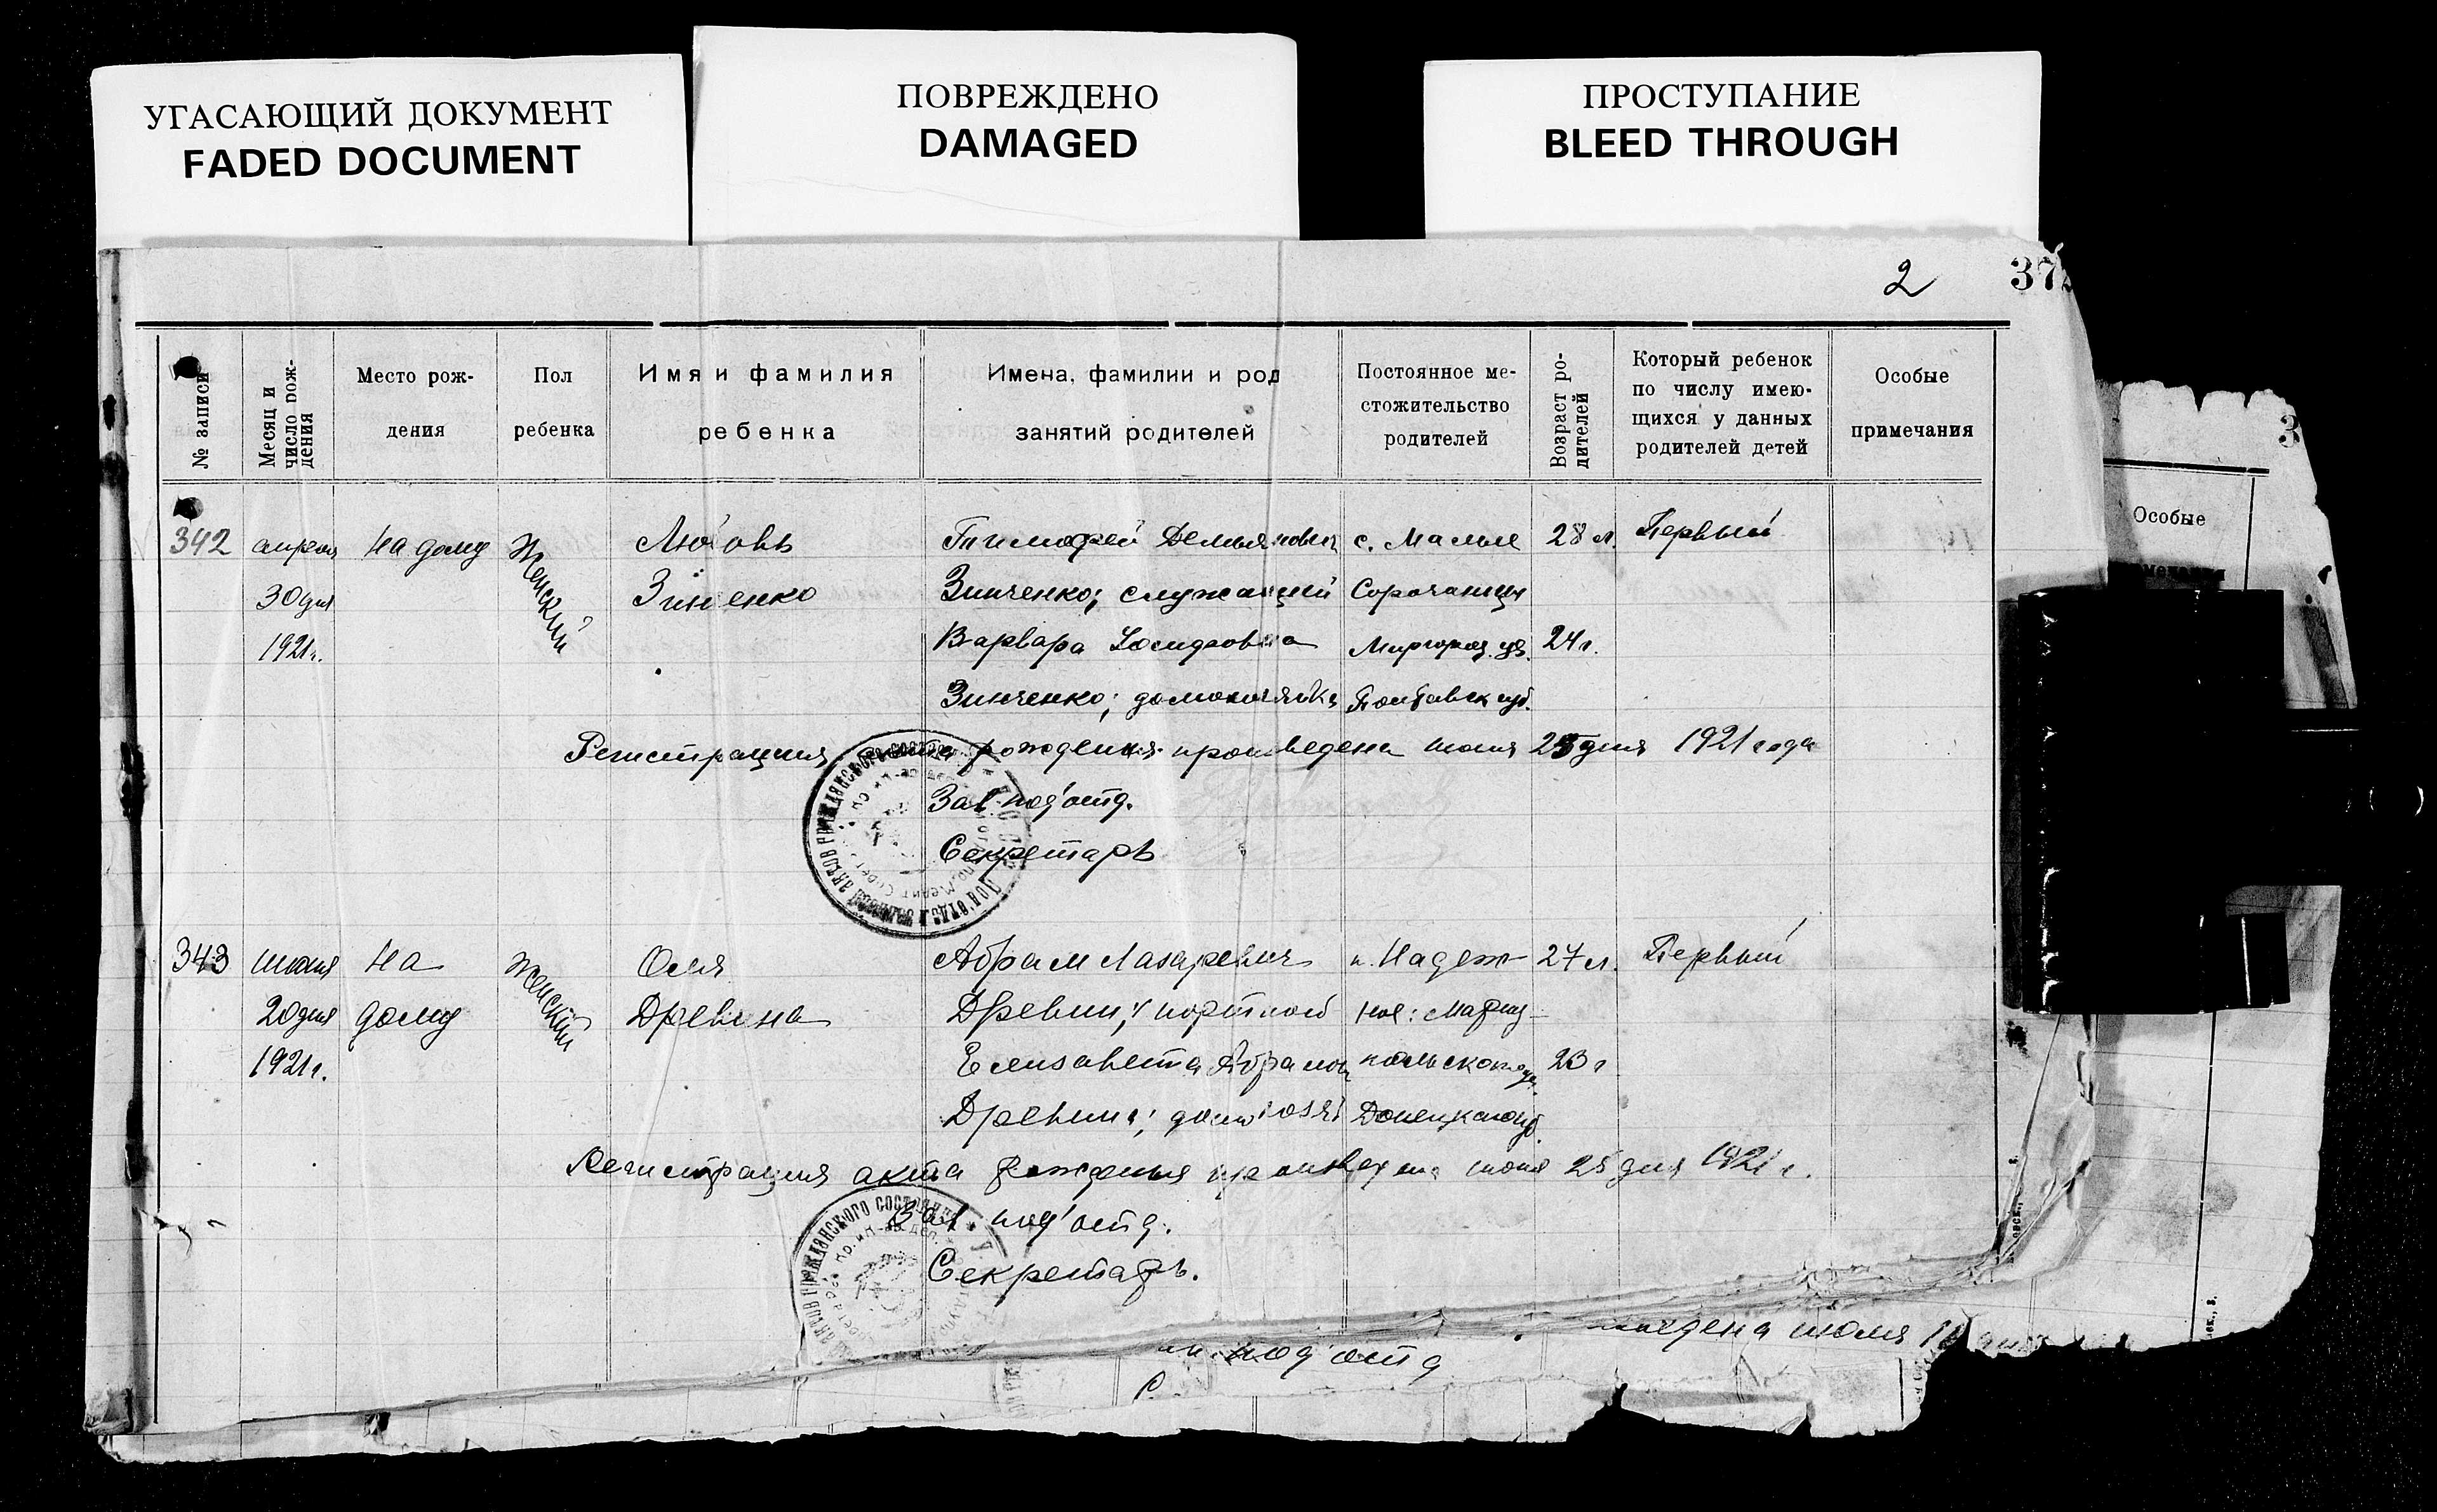 УГАСАЮЩИЙ ДОКУМЕНТ
FADED DOCUMENT
ПОВРЕЖДЕНО
DAMAGED
ПРОСТУПАНИЕ
BLEED THROUGH
2
37
№ записи
Месяц и число рождения
Место рождения
Пол ребенка
Имя и фамилия ребенка
Имена, фамилии и род занятий родителей
Постоянное местожительство родителей
Возраст родителей
Который ребенок по числу имеющихся у данных родителей детей
Особые примечания
Особые
342 апреля На дому Женский Любовь Тимофей Демьянович с. Малые 28 л. Первый
30 дня Зинченко Зинченко; служащий Сорочинцы
1921 г. Варвара Миргород. уез. 24 г.
Зинченко; домохозяйка Полтавск губ.
Регистрация акта рождения произведена июня 25 дня 1921 года
Зав. под'отд.
Секретарь
343 июня На Женский Оля Абрам Лазаревич к. Надеж- 27 л. Первый
20 дня дому Древина Древин; портной ное: Мариу-
1921 г. Елизавета Абрамов польского уез. 23 г
Древина; домохозяй Донецкой губ.
Регистрация акта рождения произведена июня 25 дня 1921 г.
Зав под'отд.
Секретарь.
ведена июля
под'отд
С